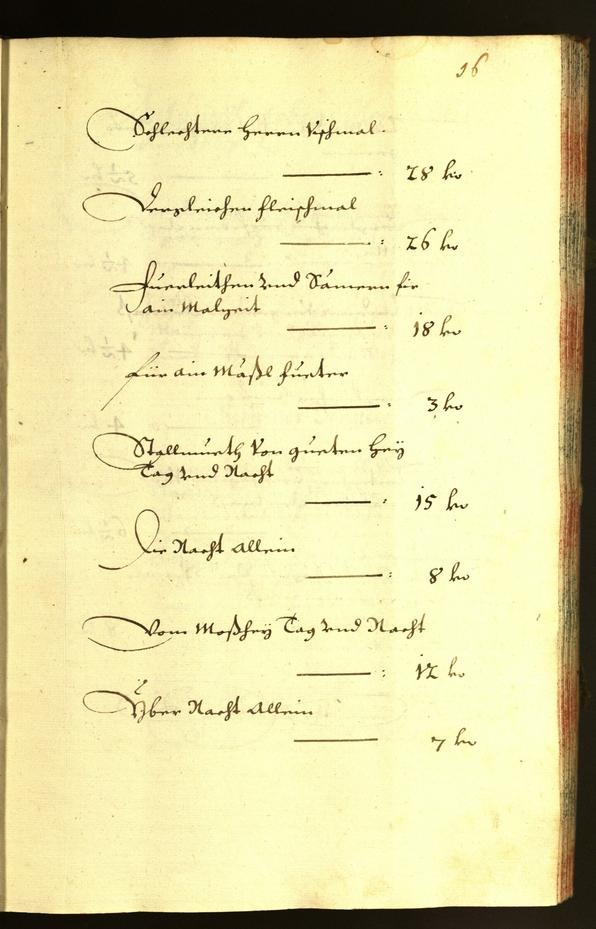 96
Schlechtere herrn Vischmal.
——— : 28 kr
Dergleichen fleischmal
——— : 26 kr
Fuerleithen vnd Sämern für
ain Malzeit
——— : 18 kr
für ain Mäßl fueter
——— : 3 kr
Stallmueth von gueten Hey
Tag vnd Nacht
——— : 15 kr
Die Nacht allein
——— : 8 kr
Vom Moßhey Tag vnd Nacht
——— : 12 kr
Yber Nacht allein
——— 7 kr